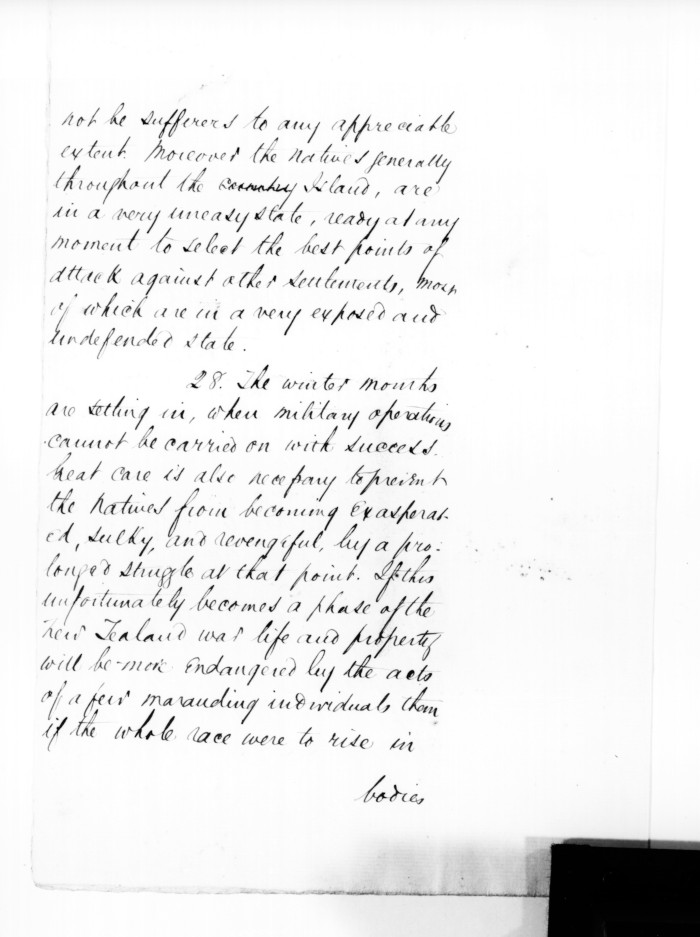 not be sufferers to any appreciable
extent. Moreover the Natives generally
throughout the country Island, are
in a very uneasy state, ready at any
moment to select the best points of
attack against other settlements, most
of which are in a very exposed and
undefended state.
28. The winter months
are setting in, when military operations
cannot be carried on with success.
Great care is also necessary to prevent
the Natives from becoming exasperat-
ed, sulky, and revengeful, by a pro-
longed struggle at that point. If this
unfortunately becomes a phase of the
New Zealand war life and property
will be more endangered by the acts
of a few marauding individuals than
if the whole race were to rise in
bodies